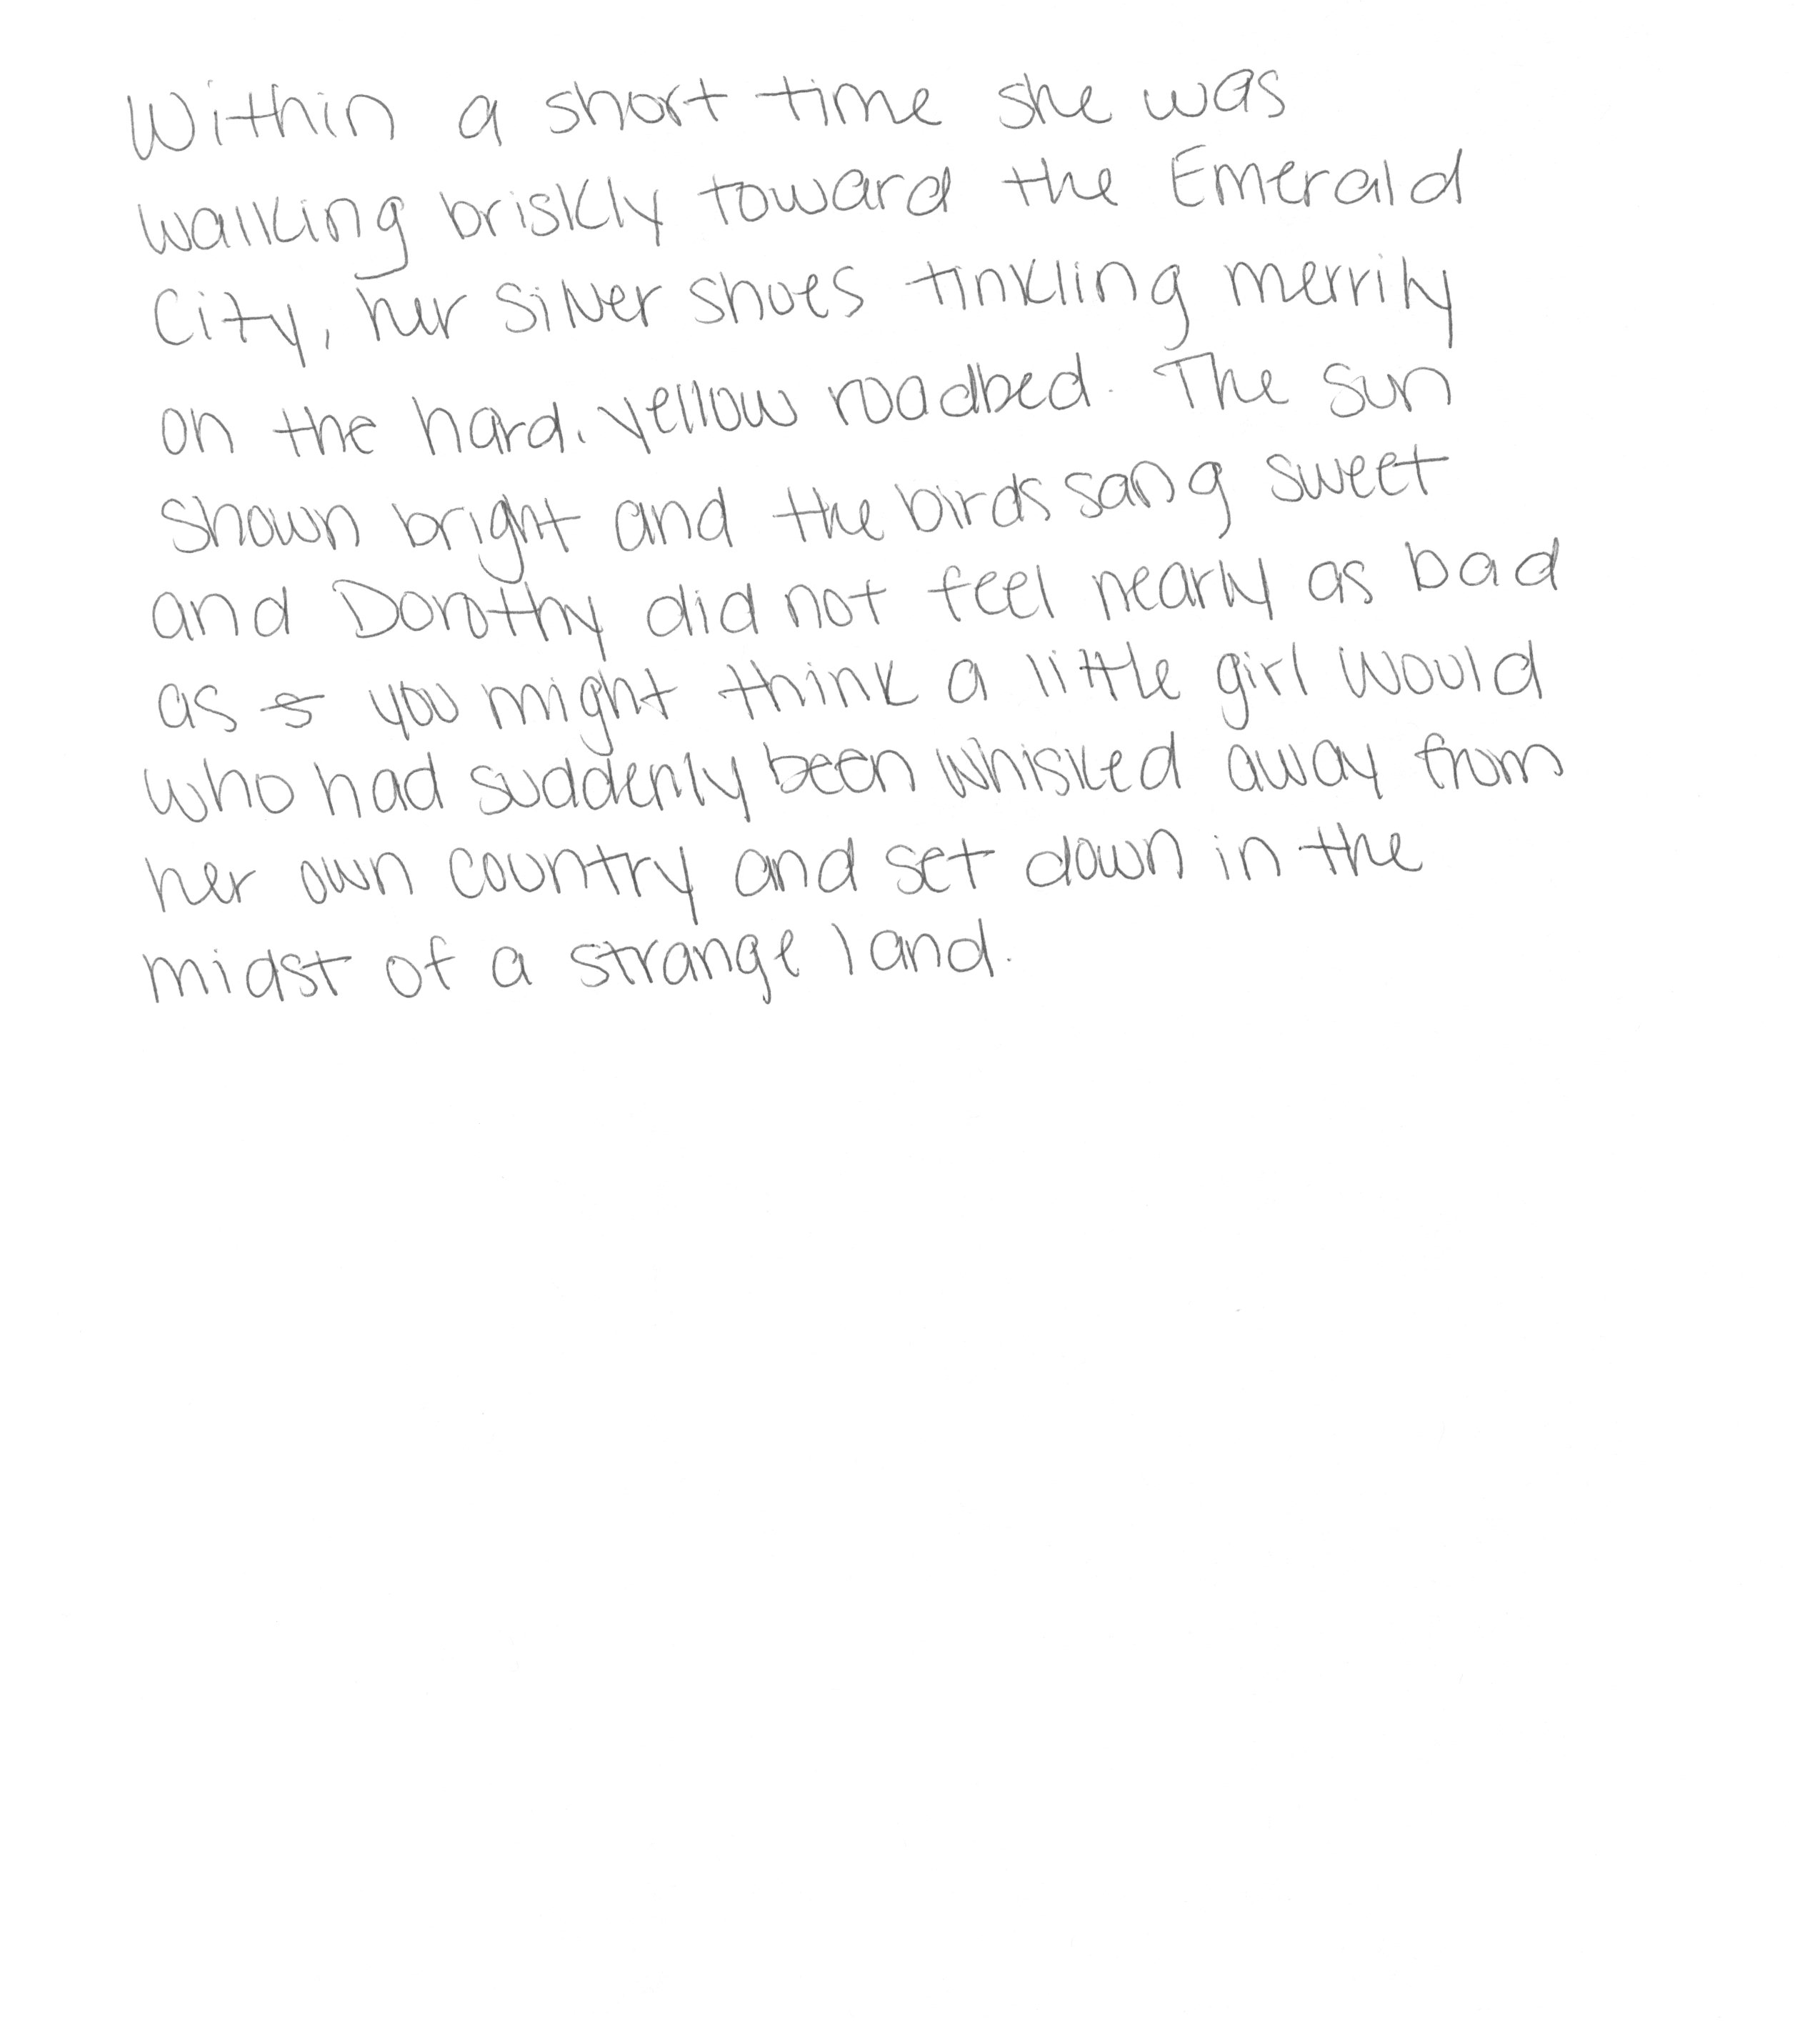 Within a short time she was
walking briskly toward the Emerald
City, her silver shoes tinkling merrily
on the hard, yellow roadbed. The sun
shown bright and the birds sang sweet
and Dorothy did not feel nearly as bad
as you might think a little girl would
who had suddenly been whisked away from
her own country and set down in the
midst of a strange land.